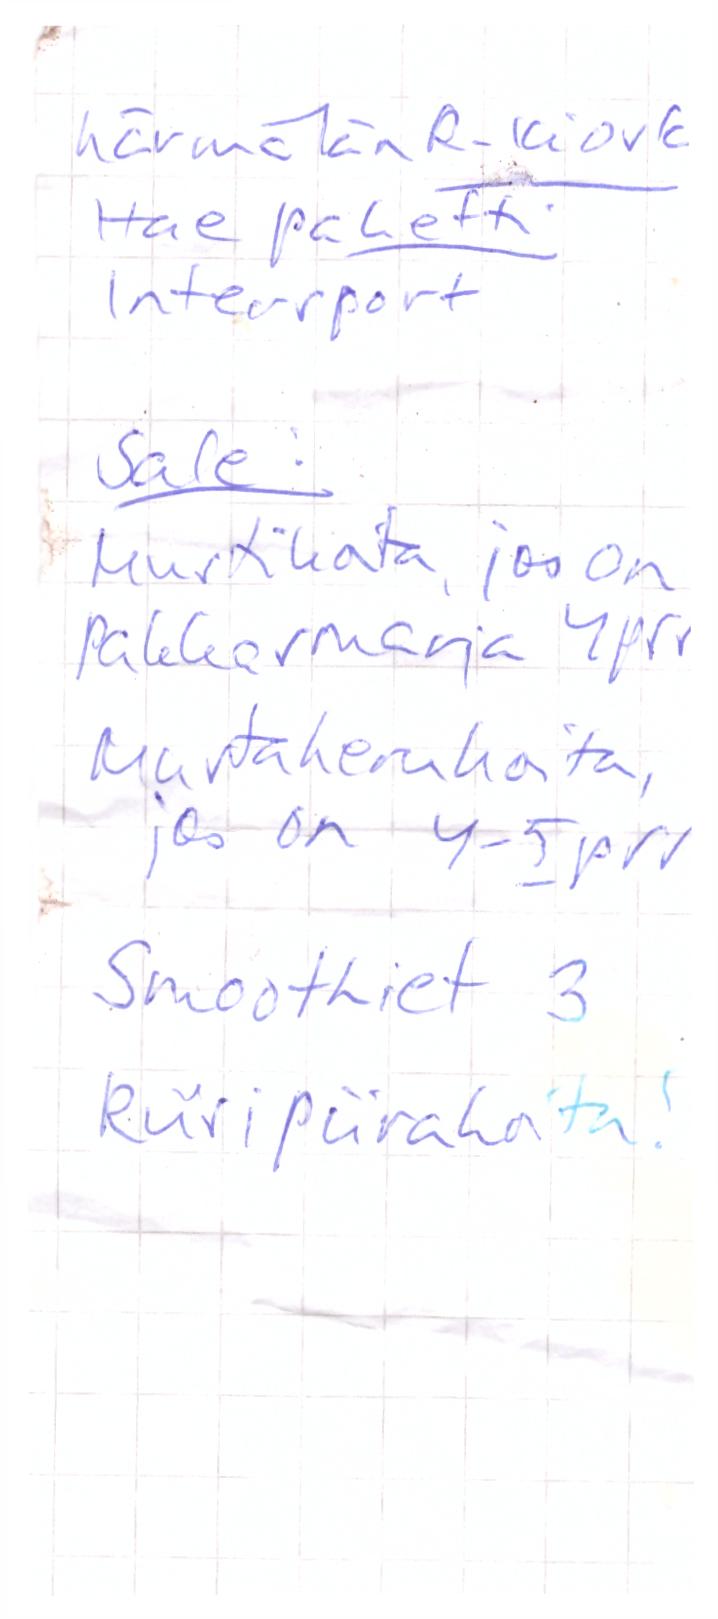 Härmälän R-kiosk
Hae paketti:
Intersport
Sale:
Mustikoita, jos on
pakkasmarja 4 pss
Mustaherukoita,
jos on 4-5 pss
Smoothiet 3
Riisipiirakoita!